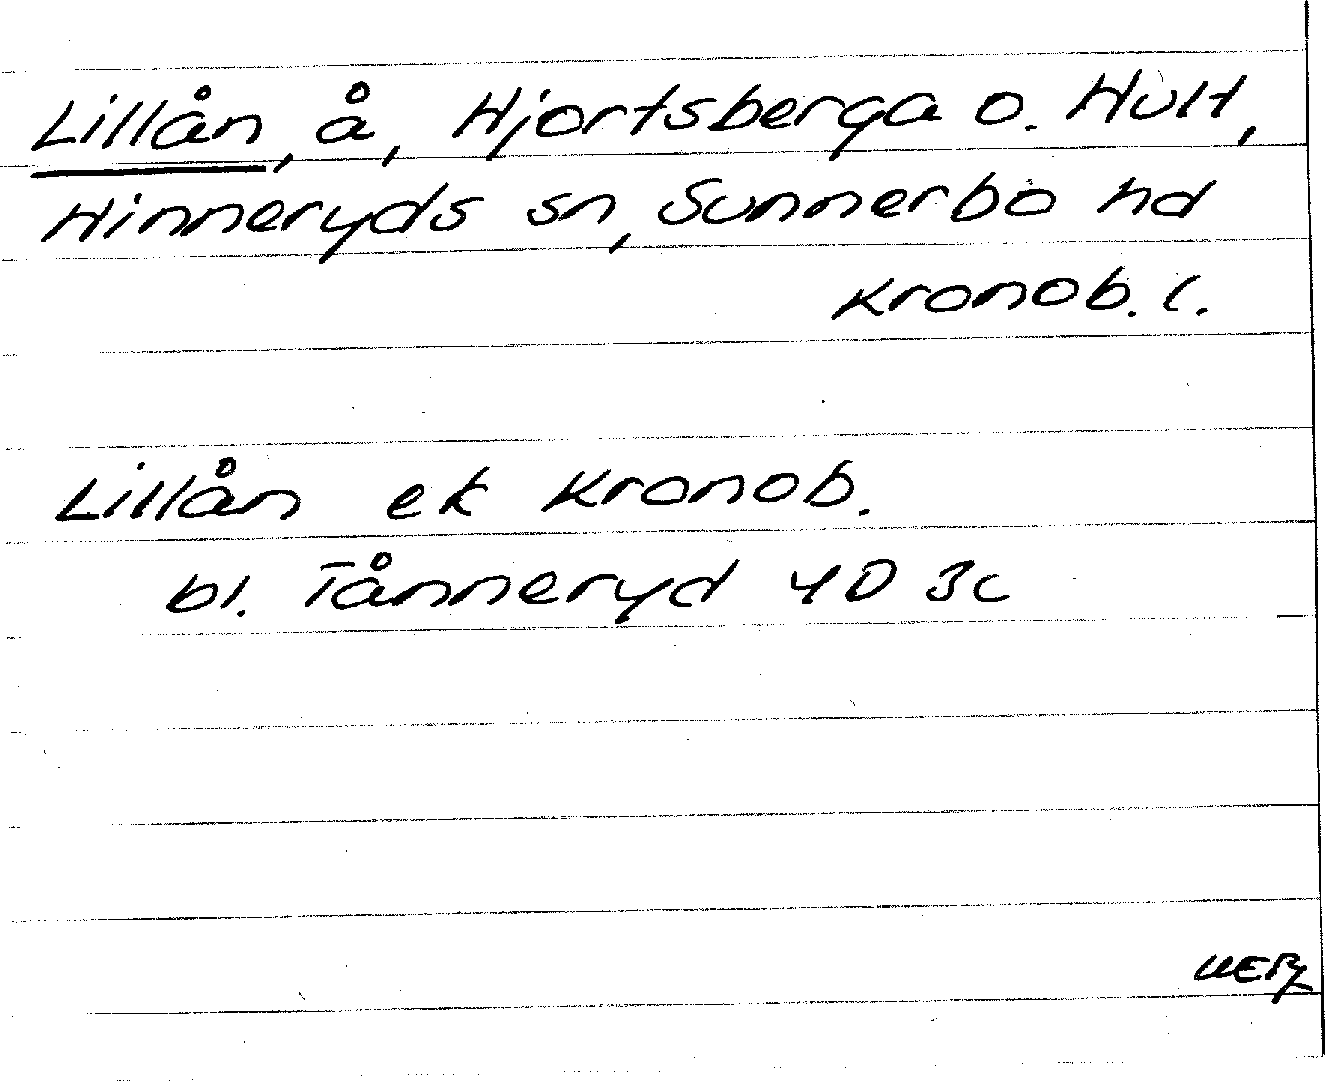 Lillån, å, Hjortsberga o. Hult,
Hinneryds sn, Sunnerbo hd
Kronob. l.
Lillån ek Kronob.
bl. Tånneryd 4D 3c